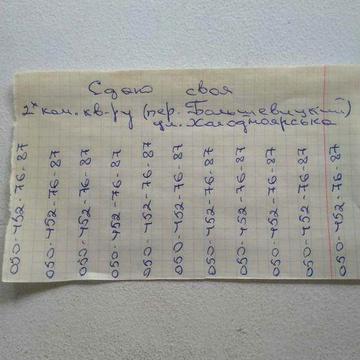 Сдаю своя
2х ком. кв-ру (пер. Большевицкий)
ул. Холодноярська
050-452-76-87
050-452-76-87
050-452-76-87
050-452-76-87
050-452-76-87
050-452-76-87
050-452-76-87
050-452-76-87
050-452-76-87
050-452-76-87
050-452-76-87